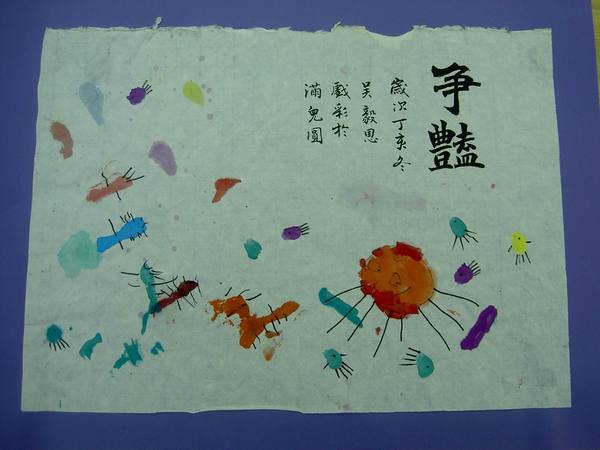 争豔
歲次丁亥冬
吴毅思
戲彩於
滿兒圓